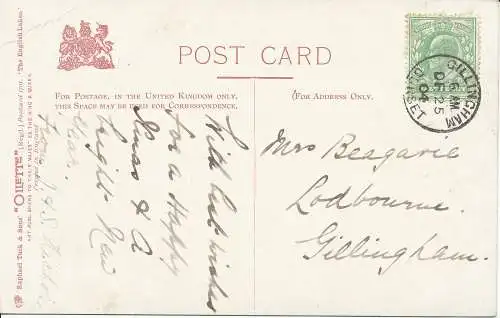 POST CARD
FOR POSTAGE, IN THE UNITED KINGDOM ONLY,
THIS SPACE MAY BE USED FOR CORRESPONDENCE.
(FOR ADDRESS ONLY.)
GILLINGHAM
DORSET
DE 25
04
With best wishes
for a Happy
Xmas & A
Bright New
Year.
From
Mrs Beagarie
Lodbourne.
Gillingham.
Raphael Tuck & Sons' "OILETTE" [Regd.] Postcard 1791. "The English Lakes."
ART PUBLISHERS TO THEIR MAJESTIES THE KING & QUEEN.